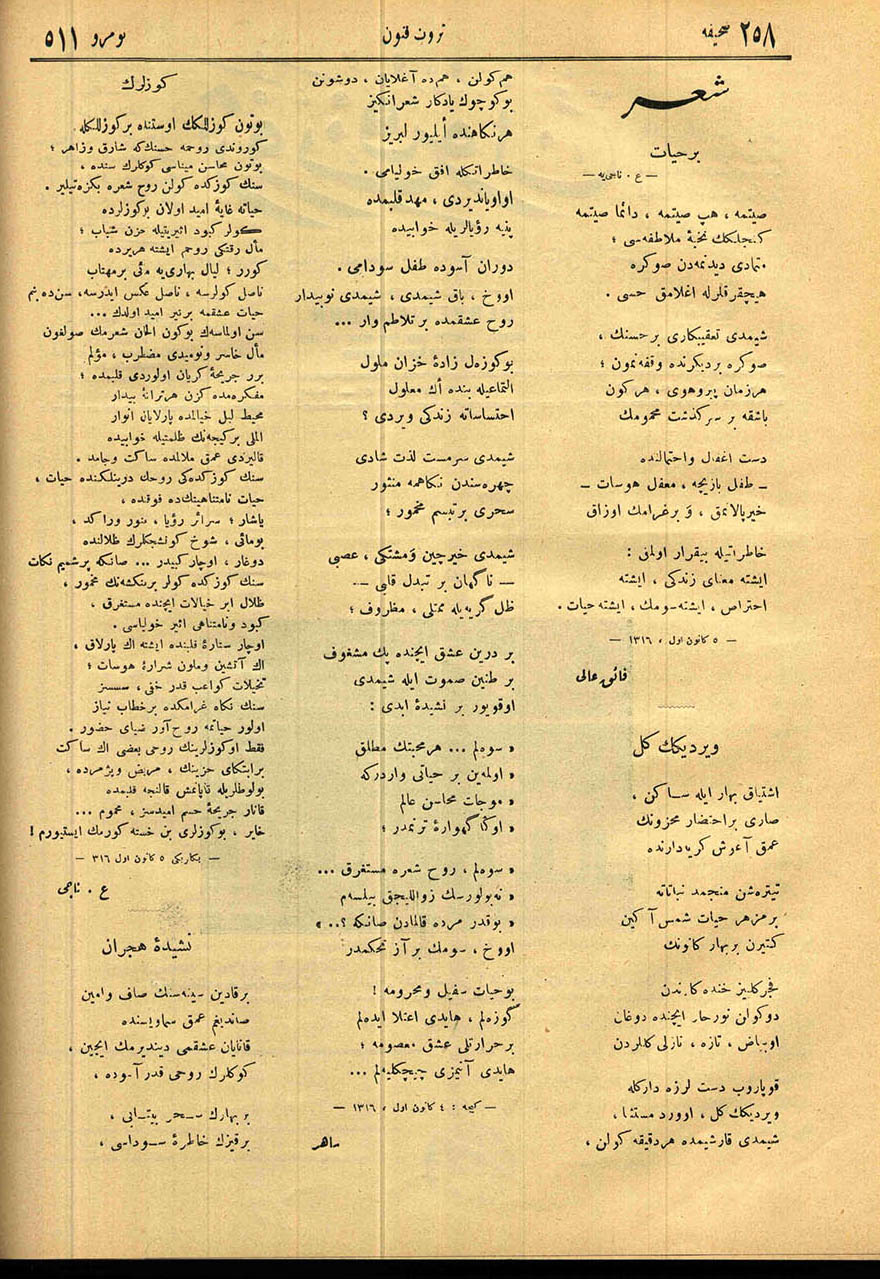 صحیفه ٢٥٨
ثروت فنون
نومرو ٥١١
شعر
برحیات
— ع . ناجی‌یه —
صیتمه ، هپ صیتمه ، دائما صیتمه
كنجلكك نخبهٔ ملاطفه‌سی ؛
تمادی دیدنمه‌دن صوكره
هیچقرقلرله اغلامق حسی .
شیمدی تعقیبكاری برحسنك ،
صوكره بردیكرنده وقفه‌نمون ؛
هرزمان پیروهوی ، هركون
باشقه بر سركذشت محمومك
دست اغفال واحتمالنده
— طفل بازیچه ، معفل هوسات —
خیرپالانمق ، و برغرامك اوزاق
خاطراتیله بیقرار اولمق :
ایشته معنای زندكی ، ایشته
احتراص ، ایشته‌سومك ، ایشته حیات .
— ٥ كانون اول ، ١٣١٦ —
فائق عالی
ویردیكك كل
اشتیاق بهار ایله ساكن ،
صاری براحتضار محزونك
عمق آغوش كریه‌دارنده
تیتره‌شن منجمد نباتاته
برمزهر حیات شمس‌آكین
كتیرن بربهار كانونك
فجركلیز خنده‌كارندن
دوكولن نورحار ایچنده دوغان
اوبیاض ، تازه ، نازلی كللردن
قوپاروب دست لرزه داركله
ویردیكك كل ، اوورد مستثنا ،
شیمدی قارشیمده هردقیقه كولن ،
هم كولن ، هم‌ده آغلایان ، دوشونن
بوكوچوك یادكار شعرانكیز
هرنكاهنده أیلیور لبریز
خاطراتكله افق خولیامی .
اواویاندیردی ، مهد قلبمده
پنبه رؤیالریله خوابیده
دوران آسوده طفل سودامی .
اووخ ، باق شیمدی ، شیمدی نوبیدار
روح عشقمده بر تلاطم وار ...
بوكوزه‌ل زادهٔ خزان ملول
التماعیله بنده أك معلول
احتساساته زندكی ویردی ؟
شیمدی سرمست لذت شادی
چهره‌سندن نكاهمه منثور
سحری برتبسم مخمور ؛
شیمدی خیرچین ومشتكی ، عصبی
— ناكهان بر تبدل قلبی —
ظل كریه‌یله ممتلی ، مظروف ؛
بر درین عشق ایچنده پك مشغوف
بر طنین صموت ایله شیمدی
اوقویور بر نشیدهٔ ابدی :
« سوه‌لم ... هرمحبتك مطلق
« اولمه‌ین بر حیاتی واردركه
« موجات محاسن عالم
« اوكا كهوارهٔ ترنمدر ؛
« سوه‌لم ، روح شعره مستغرق ...
« نه‌بولورسك زواللیجق بیلسه‌م
« بوقدر مرده قالمادن صانكه ؟.. »
اووخ ، سومك برآز تحكمدر
بوحیات سفیل ومحرومه !
كوزه‌لم ، هایدی اعتلا ایده‌لم
برحرارتلی عشق معصومه ؛
هایدی آتیمزی چیچكلیه‌لم ...
— كیجه : ٤ كانون اول ، ١٣١٦ —
ساهر
كوزلرك
بوتون كوزللكك اوستنده بركوزللكله
كوروندی روحمه حسنك‌كه شارق وزاهر ؛
بوتون محاسن میناسی كوكلرك سنده ،
سنك كوزكده كولن روح شعره بكزه‌تیلیر .
حیاته غایهٔ امید اولان بركوزلرده
كولر كبود اثیریتیله حزن شباب ؛
مآل رقتكی روحم ایشته هریرده
كورر ؛ لیال بهاری‌یه مائی برمهتاب
ناصل كولرسه ، ناصل عكس ایدرسه ، سن‌ده بنم
حیات عشقمه برنیر امید اولدك ...
سن اولماسه‌ك بوكون الحان شعرمك صولغون
مآل خاسر ونومیدی مضطرب ، مؤلم
برر جریحهٔ كریان اولوردی قلبمده ؛
مفكره‌مده كزن هرترانهٔ بیدار
محیط لیل خیالمده پارلایان انوار
المی بركیجه‌نك ظلمتیله خوابیده
قالیردی عمق ملالمده ساكت وجامد .
سنك كوزكده‌كی روحك درینلكنده حیات ،
حیات نامتناهیتك‌ده فوقنده ،
یاشار ؛ سرائر رؤیا ، منور وراكد ،
بومائی ، شوخ كونشجكلرك ظلالنده
دوغار ، اوچار كبیدر ... صانكه پرشمیم نكات
سنك كوزكده كولر برینكشه‌نك مخمور ،
ظلال ابر خیالات ایچنده مستغرق ،
كبود ونامتناهی اثیر خولیاسی .
اوچار ستارهٔ قلبنده ایشته اك پارلاق ،
اك آتشین وملون شرارهٔ هوسات ؛
تخیلات كواعب قدر خفی ، سسسز
سنك نكاه غرامكده برخطاب نیاز
اولور حیاتمه روح‌آور ضیای حضور .
فقط اوكوزلرینك روحی بعضی اك ساكت
برابتكای حزینك ، مریض وپژمرده ،
بولوطلریله قاپانمش قالنجه قلبمده
قانار جریحهٔ حسم امیدسز ، مغموم ...
خایر ، بوكوزلری بن خسته كورمك ایستیورم !
— بكاربكی ٥ كانون اول ٣١٦ —
ع . ناجی
نشیدهٔ هجران
برقادین سینه‌سنك صاف وامین
صاندیغم عمق سماویسنده
قانایان عشقمی دیندیرمك ایچین ،
كوكلرك روحی قدر آسوده ،
بربهارك سحر بیتابی ،
برقیزك خاطرهٔ سوداسی ،